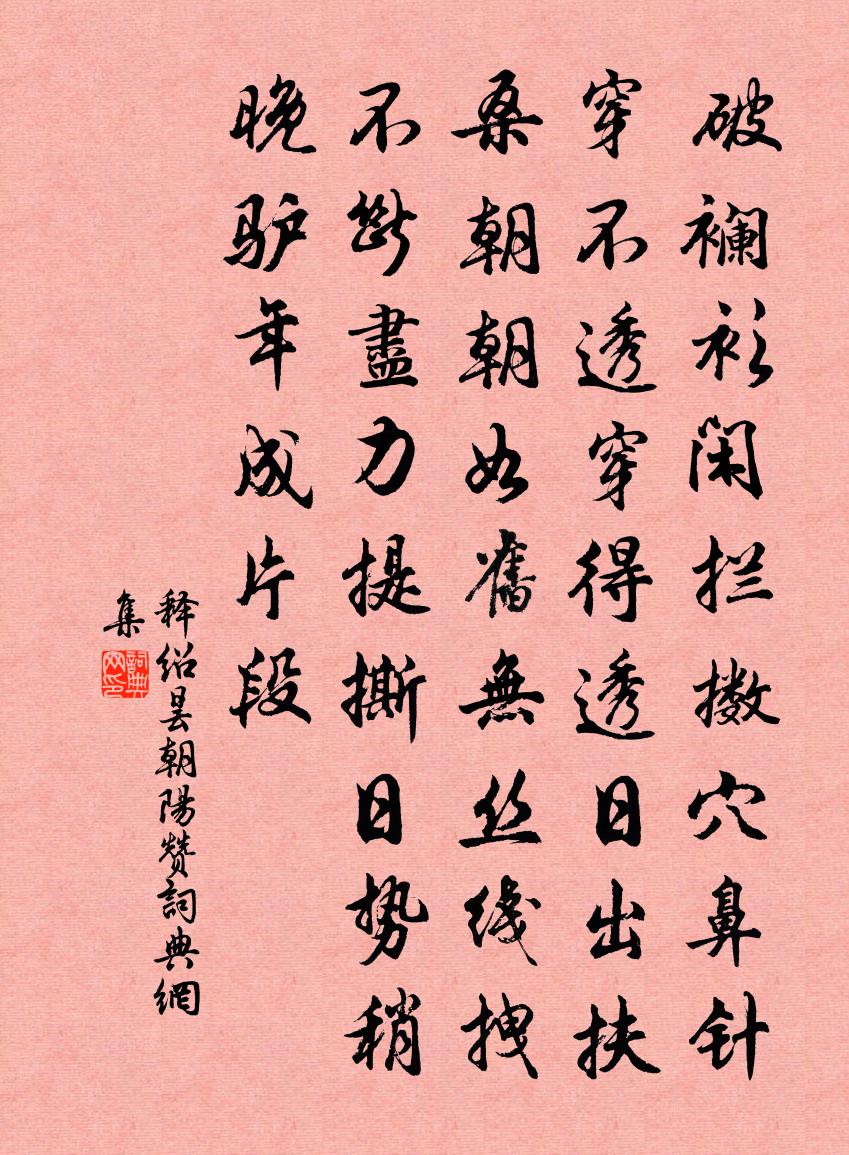 破襕衫闲拦擞穴鼻针
穿不透穿得透日出扶
桑朝朝如舊無丝线拽
不斷盡力提撕日势稍
晚驴年成片段
释绍昙朝陽赞詞典網
集
詞典网印